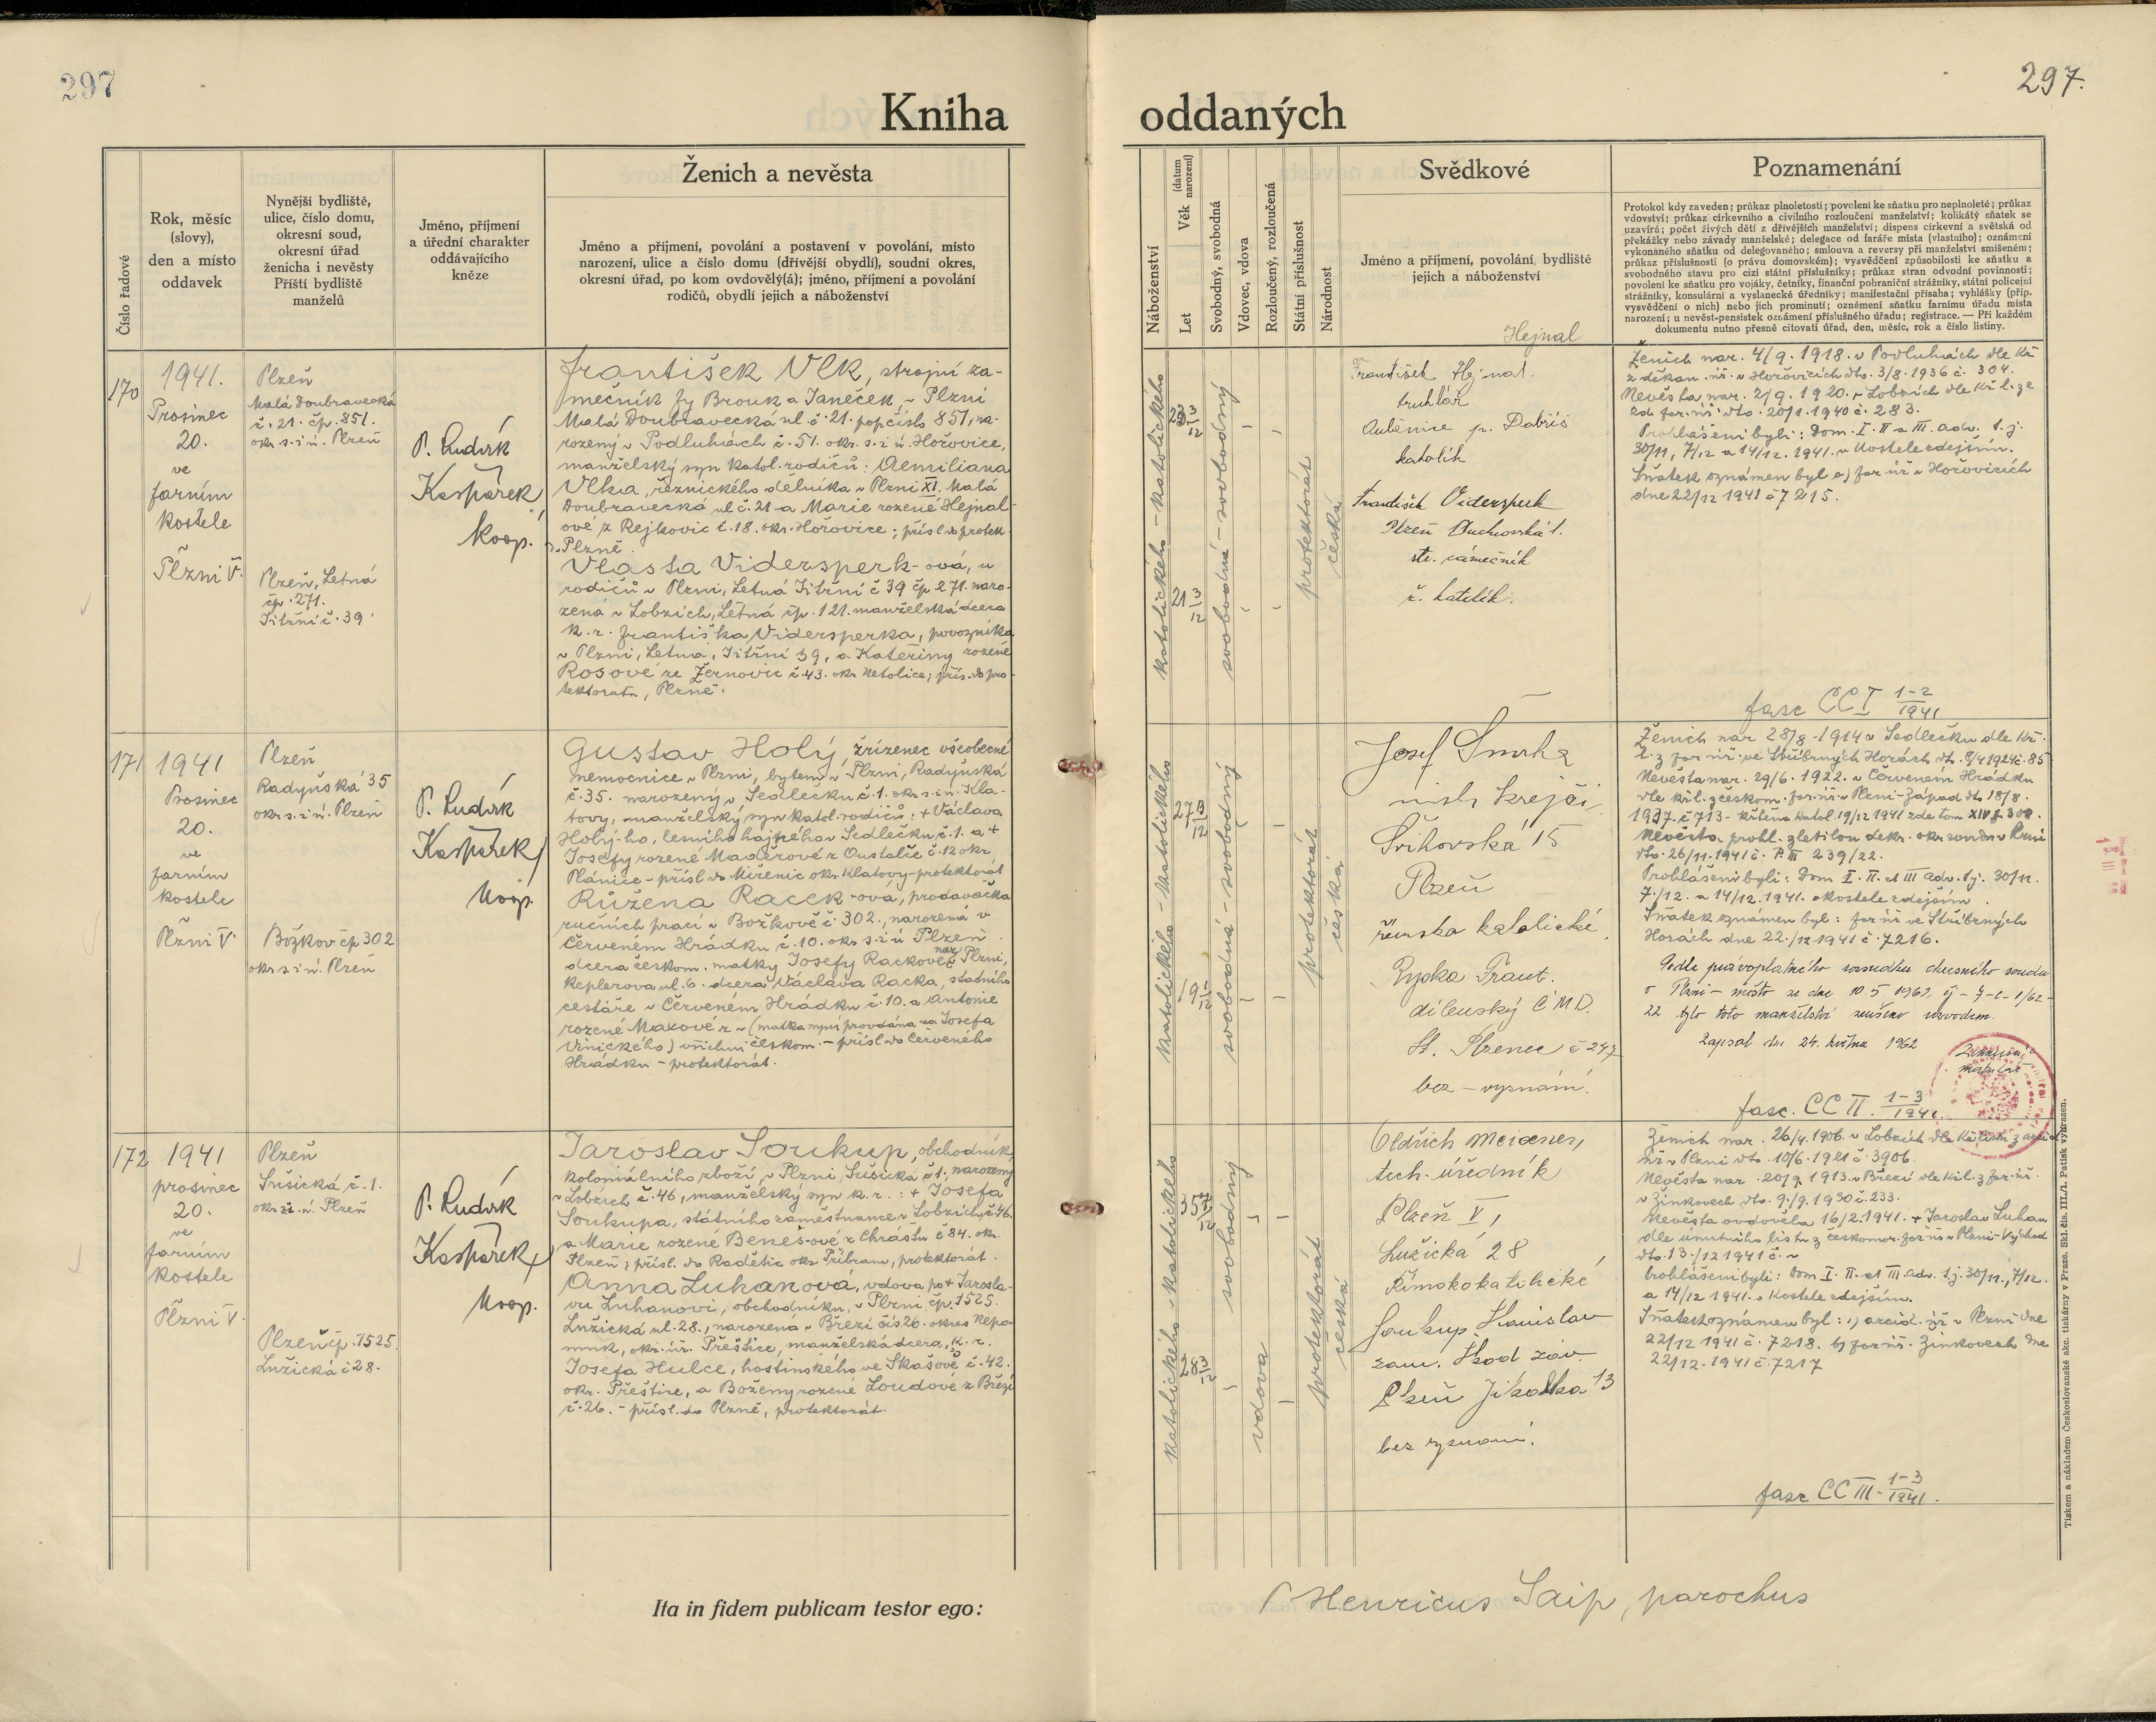 297
297.
Kniha
oddaných
Číslo řadové
Rok, měsíc
(slovy),
den a místo
oddavek
Nynější bydliště,
ulice, číslo domu,
okresní soud,
okresní úřad
ženicha i nevěsty
Příští bydliště
manželů
Jméno, příjmení
a úřední charakter
oddávajícího
kněze
Ženich a nevěsta
Jméno a příjmení, povolání a postavení v povolání, místo
narození, ulice a číslo domu (dřívější obydlí), soudní okres,
okresní úřad, po kom ovdovělý(á); jméno, příjmení a povolání
rodičů, obydlí jejich a náboženství
Náboženství
Let Věk (datum narození)
Svobodný, svobodná
Vdovec, vdova
Rozloučený, rozloučená
Státní příslušnost
Národnost
Svědkové
Jméno a příjmení, povolání, bydliště
jejich a náboženství
Poznamenání
Protokol kdy zaveden; průkaz plnoletosti; povolení ke sňatku pro neplnoleté; průkaz
vdovství; průkaz církevního a civilního rozloučení manželství; kolikátý sňatek se
uzavírá; počet živých dětí z dřívějších manželství; dispens církevní a světská od
překážky nebo závady manželské; delegace od faráře místa (vlastního); oznámení
vykonaného sňatku od delegovaného; smlouva a reversy při manželství smíšeném;
průkaz příslušnosti (o právu domovském); vysvědčení způsobilosti ke sňatku a
svobodného stavu pro cizí státní příslušníky; průkaz stran odvodní povinnosti;
povolení ke sňatku pro vojáky, četníky, finanční pohraniční strážníky, státní policejní
strážníky, konsulární a vyslanecké úředníky; manifestační přísaha; vyhlášky (příp.
vysvědčení o nich) nebo jich prominutí; oznámení sňatku farnímu úřadu místa
narození; u nevěst-pensistek oznámení příslušného úřadu; registrace. — Při každém
dokumentu nutno přesně citovati úřad, den, měsíc, rok a číslo listiny.
170
1941.
Prosinec
20.
ve
farním
kostele
Plzni V.
Plzeň
Malá Doubravecká
č. 21. čp. 851.
okr. s. i ú. Plzeň
Plzeň, Letná
čp. 271.
Jitřní č. 39.
P. Ludvík
Kašpárek,
koop.
František Vlk, strojní zá-
mečník fy Brouk a Janeček, v Plzni
Malá Doubravecká ul. č. 21. pop. číslo 851, na-
rozený v Podluhách č. 51. okr. s. i ú. Hořovice,
manželský syn katol. rodičů: Aemiliana
Vlka, řeznického dělníka v Plzni XI. Malá
Doubravecká ul č. 21 a Marie rozené Hejnal-
ové z Rejkovic č. 18. okr. Hořovice; přísl. do protek.
Plzně.
Vlasta Vidersperk-ová, u
rodičů v Plzni, Letná Jitřní č 39 čp 271. naro-
zená v Lobzích, Letná čp. 121. manželská dcera
k. r. Františka Vidersperka, povozníka
v Plzni, Letná, Jitřní 39, a Kateřiny rozené
Rosové ze Žernovic č. 43. okr. Netolice; přís. do pro-
tektorátu, Plzně.
katolického - katolického
23 3/12
21 3/12
svobodná - svobodný
protektorát
česká
Hejnal
František Hejnal.
truhlár
Aubenice p. Dobříš
katolík
František Vidersperk
Plzeň Duchovská 1.
str. zámečník
ř. katolík.
Ženich nar. 4/9. 1918. v Podluhách dle kř.
z děkan. úř. v Hořovicích dto. 3/8. 1936 č. 304.
Nevěsta nar. 2/9. 1920. v Lobzích dle kř. l. ze
zd. far. úř. dto. 20/1. 1940 č. 283.
Prohlášeni byli: Dom. I. II a III. adv. t. j.
30/11, 7/12 a 14/12. 1941. v kostele zdejším.
Sňatek oznámen byl a) far úř v Hořovicích
dne 22/12 1941 č 7215.
fasc CC I 1-2/1941
171
1941
Prosinec
20.
ve
farním
kostele
Plzni V.
Plzeň
Radyňská 35
okr. s. i ú. Plzeň
Božkov čp 302
okr. s. i ú. Plzeň
P. Ludvík
Kašpárek,
koop.
Gustav Holý, zřízenec všeobecné
nemocnice v Plzni, bytem v Plzni, Radyňská
č. 35. narozený v Sedlečku č. 1. okr. s. i ú. Kla-
tovy, manželský syn katol. rodičů: + Václava
Holý-ho, lesního hajného v Sedlečku č. 1. a +
Josefy rozené Maděrové z Oustalče č. 12 okr.
Plánice - přísl. do Miženic okr. Klatovy - protektorát
Růžena Racek-ová, prodavačka
ručních prací v Božkově č. 302., narozená v
Červeném Hrádku č. 10. okr s. i ú Plzeň.
dcera českom. matky Josefy Rackové nar. v Plzni,
Keplerova ul. 6. dcera Václava Racka, státního
cestáře v Červeném Hrádku č. 10. a Antonie
rozené Maxové z ~ (matka nyní provdána za Josefa
Vinického) všichni českom. - přísl. do Červeného
Hrádku - protektorát.
katolického - katolického
27
19
svobodná - svobodný
protektorát
česká
Josef Smrha
mistr krejčí
Švihovská 15
Plzeň
římsko katolické
Rypka Frant.
dílenský ČMD.
St. Plzenec č 247
bez - vyznání.
Ženich nar 28/8 - 1914 v Sedlečku dle kř.
l. z far úř. ve Stříbrných Horách dto. 9/4 1924 č. 85
Nevěsta nar. 29/6. 1922. v Červeném Hrádku
dle kř. l. z českom. far. úř. v Plzni-Západ dto 18/8.
1937. č 713 - křtěna katol. 19/12 1941 zde tom XIV f. 308.
Nevěsta prohl. zletilou dekr. okr. soudu v Plzni
dto. 26/11. 1941 č. P. III 239/22.
Prohlášeni byli: Dom I. II. et III adv. t. j. 30/11.
7./12. a 14/12. 1941. v kostele zdejším.
Sňatek oznámen byl: far úř ve Stříbrných
Horách dne 22./12 1941 č. 7216.
Podle právoplatného rozsudku okresního soudu
v Plzni - město ze dne 10 5 1962,
22 bylo toto manželství zrušeno rozvodem.
Zapsal dne 24. května 1962
fasc. CC II. 1-3/1941
172
1941
prosinec
20.
ve
farním
kostele
Plzni V.
Plzeň
Sušická č. 1.
okr. s. i ú. Plzeň
Plzeň čp. 1525.
Lužická č 28.
P. Ludvík
Kašpárek,
koop.
Jaroslav Soukup, obchodník
koloniálního zboží, v Plzni, Sušická č 1; narozený
v Lobzích č. 46, manželský syn k. r.: + Josefa
Soukupa, státního zaměstnance v Lobzích č. 46.
a Marie rozené Beneš-ové z Chrástu č 84. okr.
Plzeň; přísl. do Radětic okr. Příbram, protektorát.
Anna Luhanová, vdova po + Jarosla-
vu Luhanovi, obchodníku, v Plzni čp. 1525.
Lužická ul. 28., narozená v Březí čís 26. okres Nepo-
muk, okr. úř. Přeštice, manželská dcera, k. r.
Josefa Hulce, hostinského ve Skašově č. 42.
okr. Přeštice, a Boženy rozené Loudové z Březí
č. 26. - přísl. do Plzně, protektorát.
katolického - katolického
35
28 3/12
svobodný
vdova
protektorát
česká
Oldřich Meixner,
tech. úředník
Plzeň V,
Lužická 28
Římskokatolické
Soukup Stanislav
zam. Škod záv.
Plzeň Jiráska 13
bez vyznání.
Ženich nar. 26/4. 1906. v Lobzích dle kř. listu z arcid.
úř v Plzni dto. 10/6. 1921 č. 3906.
Nevěsta nar. 20/9. 1913. v Březí dle kř. l. z far. úř.
v Žinkovech dto. 9./9. 1930 č. 233.
Nevěsta ovdověla 16/2. 1941. + Jaroslav Luhan
dle úmrtního listu z českomor. far úř v Plzni-Východ
dto. 13./12 1941 č. ~
Prohlášeni byli: Dom I. II. et III. adv. t. j. 30/11., 7/12.
a 14/12 1941. v kostele zdejším.
Sňatek oznámen byl: a) arcid. úř v Plzni dne
22/12 1941 č. 7218. b) far úř. Žinkovech dne
22/12. 1941 č. 7217
fasc CC III - 1-3/1941.
Ita in fidem publicam testor ego:
P Henricus Saip, parochus
Tiskem a nákladem Československé akc. tiskárny v Praze. Skl. čís. III./1. Patisk vyhrazen.